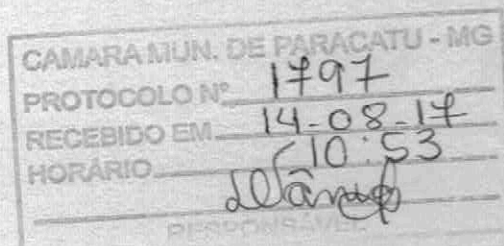 CAMARA MUN. DE PARACATU - MG
PROTOCOLO Nº 1797
RECEBIDO EM 14-08-17
HORÁRIO 10:53
RESPONSÁVEL